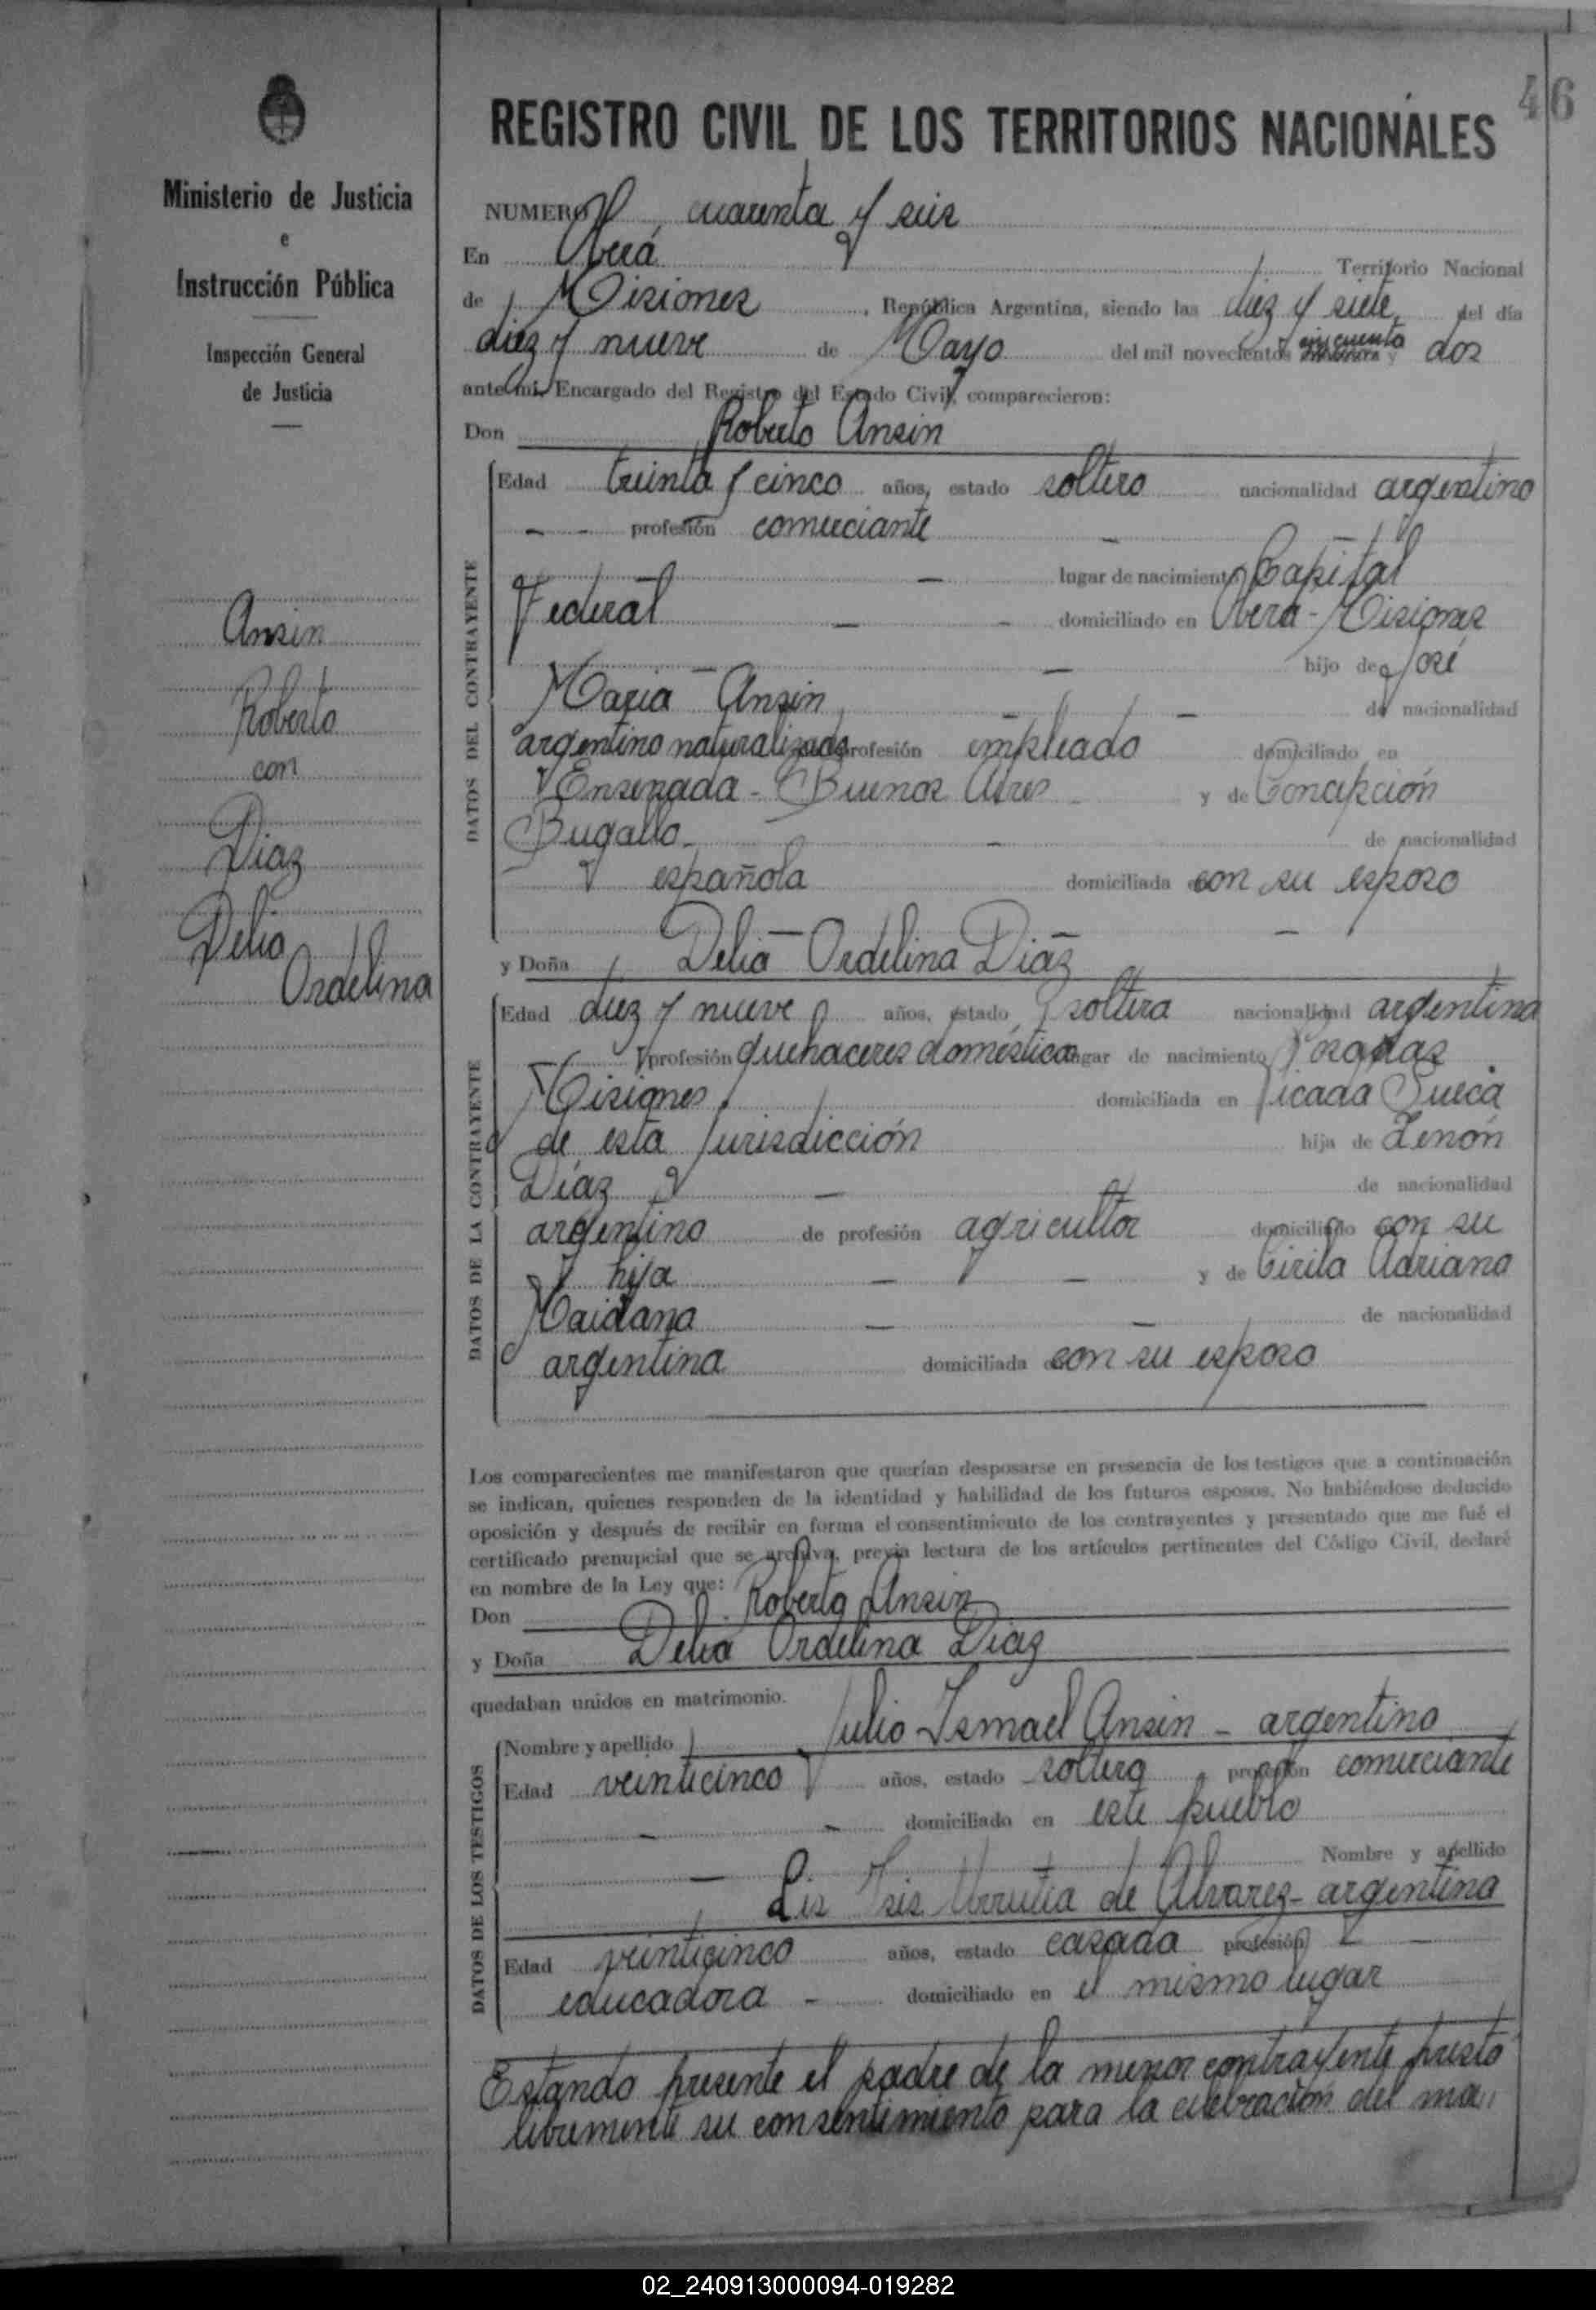 46
Ministerio de Justicia
e
Instrucción Pública
Inspección General
de Justicia
Ansin
Roberto
con
Diaz
Delia
Ordelina
REGISTRO CIVIL DE LOS TERRITORIOS NACIONALES
NUMERO cuarenta y seis
En Oberá Territorio Nacional
de Misiones, República Argentina, siendo las diez y siete del día
diez y nueve de Mayo del mil novecientos cincuenta y dos
ante mí, Encargado del Registro del Estado Civil, comparecieron:
Don Roberto Ansin
DATOS DEL CONTRAYENTE
Edad treinta y cinco años, estado soltero nacionalidad argentino
profesión comerciante
lugar de nacimiento Capital
Federal domiciliado en Oberá - Misiones
hijo de José
Maria Ansin de nacionalidad
argentino naturalizado profesión empleado domiciliado en
Ensenada - Buenos Aires y de Concepción
Bugallo de nacionalidad
española domiciliada con su esposo
y Doña Delia Ordelina Diaz
DATOS DE LA CONTRAYENTE
Edad diez y nueve años, estado soltera nacionalidad argentina
profesión quehaceres domésticos lugar de nacimiento Posadas
Misiones. domiciliada en Picada Sueca
de esta Jurisdicción hija de Zenón
Díaz de nacionalidad
argentino de profesión agricultor domiciliado con su
hija y de Cirila Adriana
Maidana de nacionalidad
argentina domiciliada con su esposo
Los comparecientes me manifestaron que querían desposarse en presencia de los testigos que a continuación
se indican, quienes responden de la identidad y habilidad de los futuros esposos. No habiéndose deducido
oposición y después de recibir en forma el consentimiento de los contrayentes y presentado que me fué el
certificado prenupcial que se archiva, previa lectura de los artículos pertinentes del Código Civil, declaré
en nombre de la Ley que:
Don Roberto Ansin
y Doña Delia Ordelina Diaz
quedaban unidos en matrimonio.
DATOS DE LOS TESTIGOS
Nombre y apellido Julio Ismael Ansin - argentino
Edad veinticinco años, estado soltero profesión comerciante
domiciliado en este pueblo
Nombre y apellido
Lis Isis Urrutia de Alvarez - argentina
Edad veinticinco años, estado casada profesión
educadora - domiciliado en el mismo lugar
Estando presente el padre de la menor contrayente prestó
libremente su consentimiento para la celebración del ma"
02_240913000094-019282